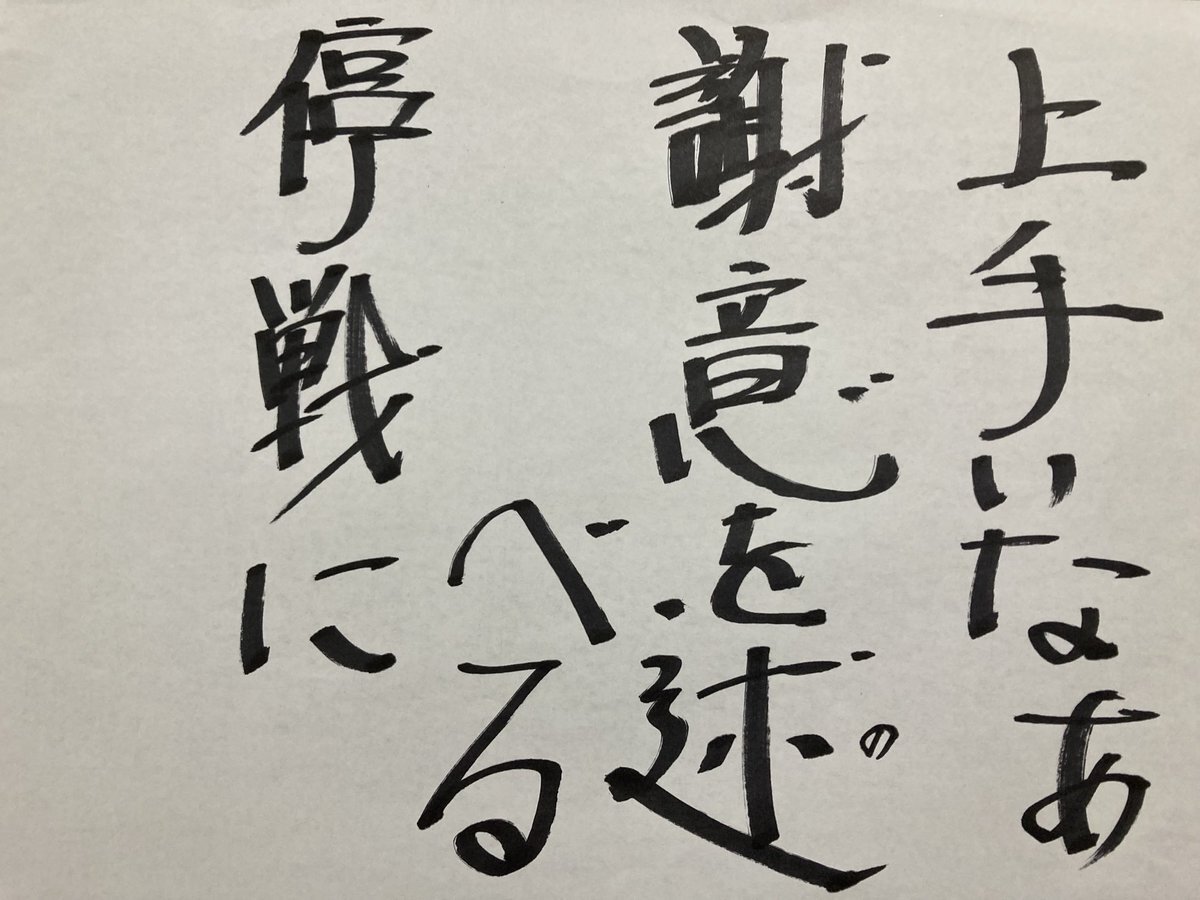 上手いなあ
謝意を述の
べる
停戦に